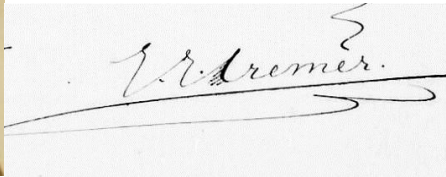 E. E. Kremer.